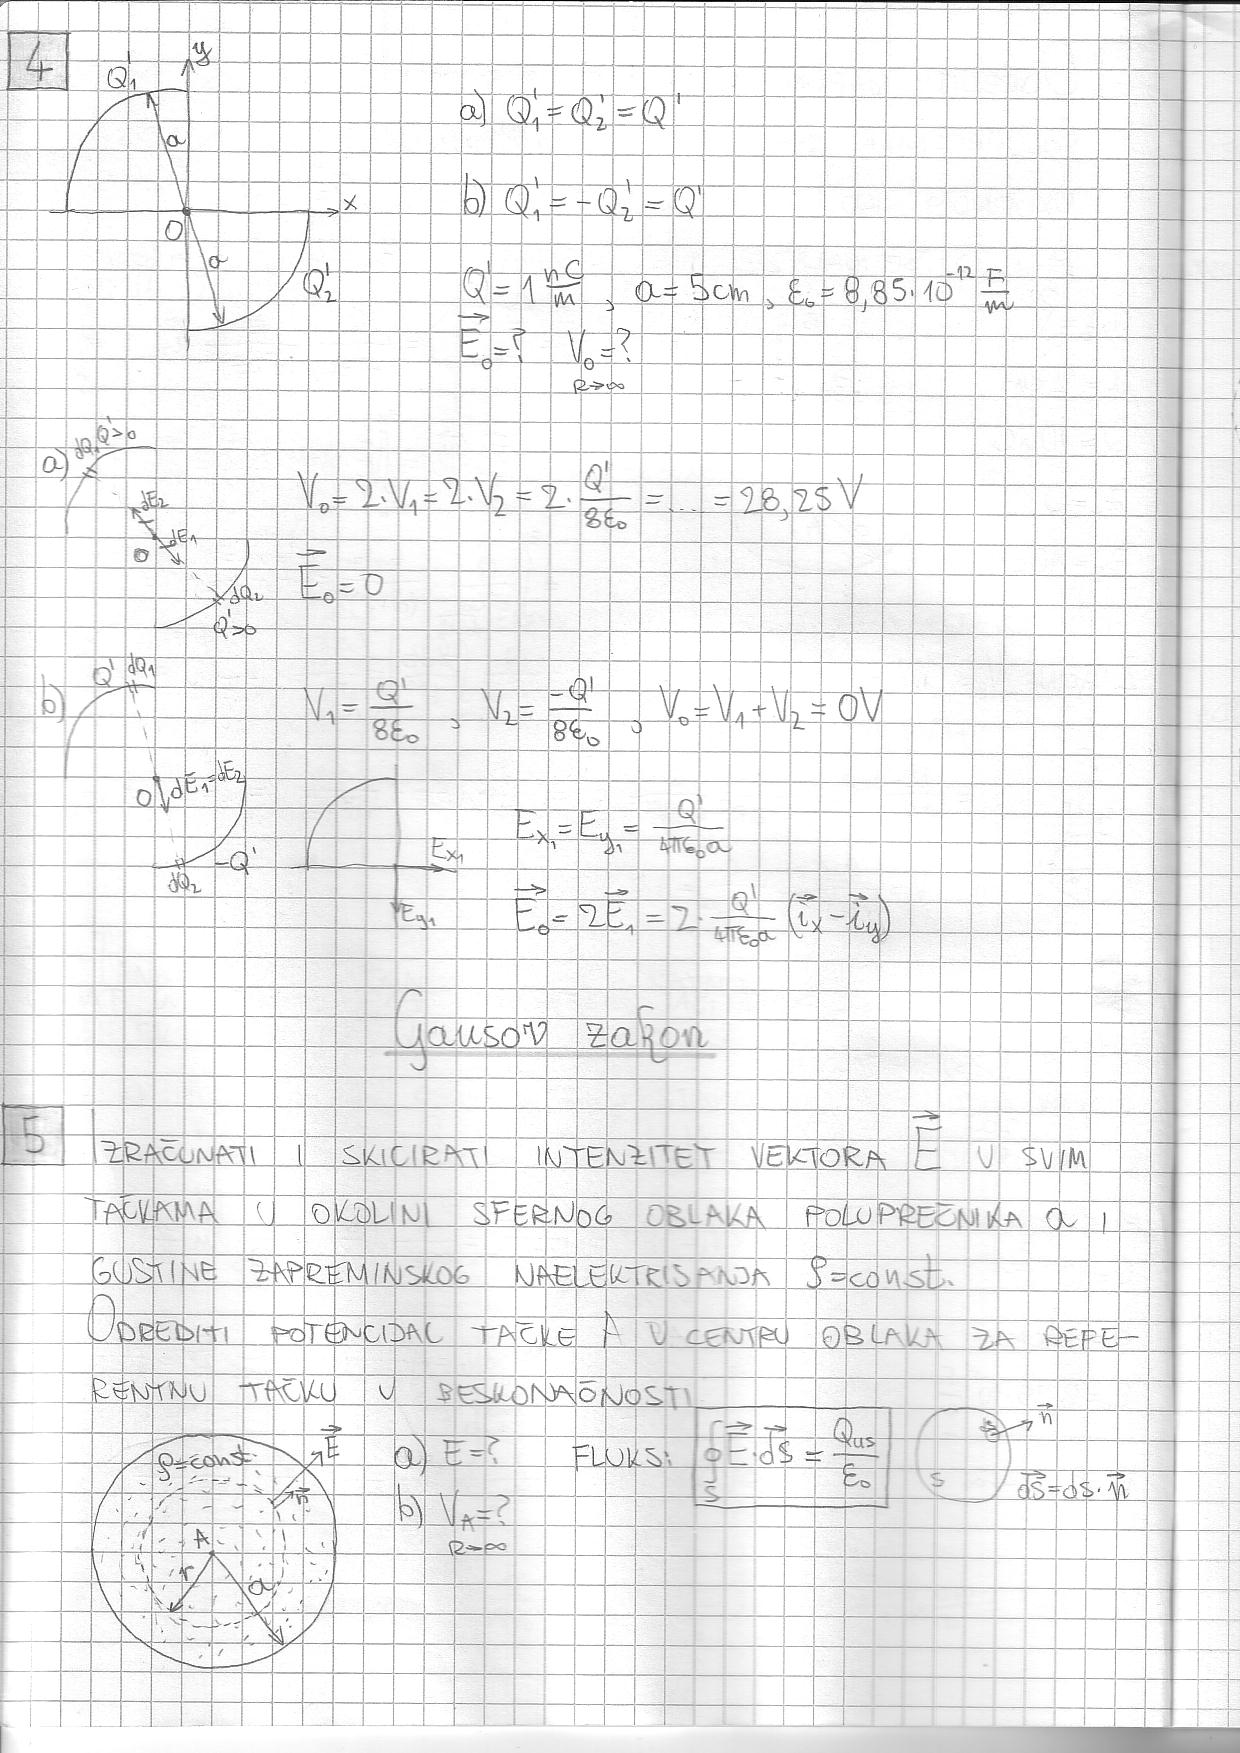 4
y
Q₁'
a
x
O
a
Q₂'
a) Q₁' = Q₂' = Q'
b) Q₁' = -Q₂' = Q'
Q' = 1 nC/m , a = 5cm , ε₀ = 8,85·10⁻¹² F/m
E⃗₀ = ? V₀ = ?
R→∞
a)
dQ₁ Q'>0
dE₂
dE₁
O
dQ₂
Q'>0
V₀ = 2·V₁ = 2·V₂ = 2· Q'/8ε₀ = ... = 28,25 V
E⃗₀ = 0
b)
Q' dQ₁
O dE₁=dE₂
-Q'
dQ₂
V₁ = Q'/8ε₀ , V₂ = -Q'/8ε₀ , V₀ = V₁ + V₂ = 0V
Ex₁
Ey₁
Ex₁ = Ey₁ = Q'/4πε₀a
E⃗₀ = 2E⃗₁ = 2· Q'/4πε₀a (i⃗x - i⃗y)
Gausov zakon
5 IZRAČUNATI I SKICIRATI INTENZITET VEKTORA E⃗ U SVIM
TAČKAMA U OKOLINI SFERNOG OBLAKA POLUPREČNIKA a ,
GUSTINE ZAPREMINSKOG NAELEKTRISANJA ρ=const.
ODREDITI POTENCIJAL TAČKE A U CENTRU OBLAKA ZA REFE-
RENTNU TAČKU U BESKONAČNOSTI
ρ=const.
E⃗
n⃗
A
r
a
a) E = ?
b) V_A = ?
R→∞
FLUKS: ∮_S E⃗·dS⃗ = Q_us/ε₀
n⃗
S
dS⃗ = dS·n⃗